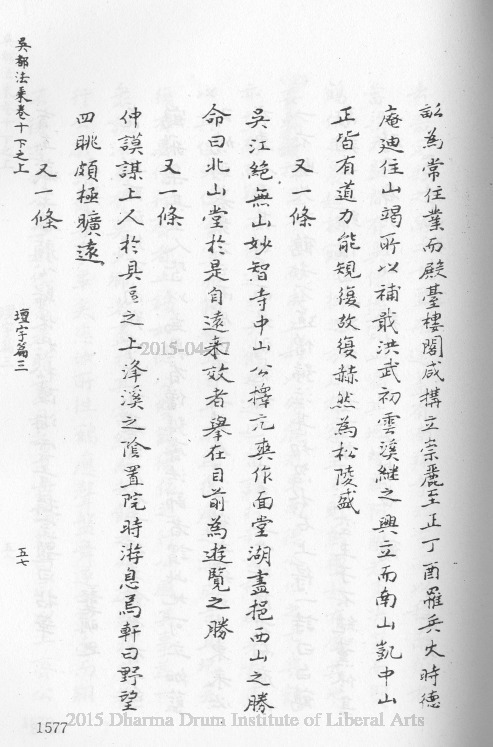 畝為常住業而殿臺樓閣咸構立崇麗至正丁酉罹兵火時德
庵廸住山竭所以補戢洪武初雲溪繼之興立而南山凱中山
正皆有道力能規復故復赫然為松陵盛
又一條
吳江絕無山妙智寺中山公擇亢爽作面堂湖盡挹西山之勝
命曰北山堂於是自遠来效者舉在目前為遊覽之勝
又一條
仲謨謀上人於具區之上洚溪之陰置院時游息焉軒曰野望
四眺頗極曠遠
又一條
吳都法乘卷十下之上
壇宇篇三
五七
1577
2015-04-17
2015 Dharma Drum Institute of Liberal Arts